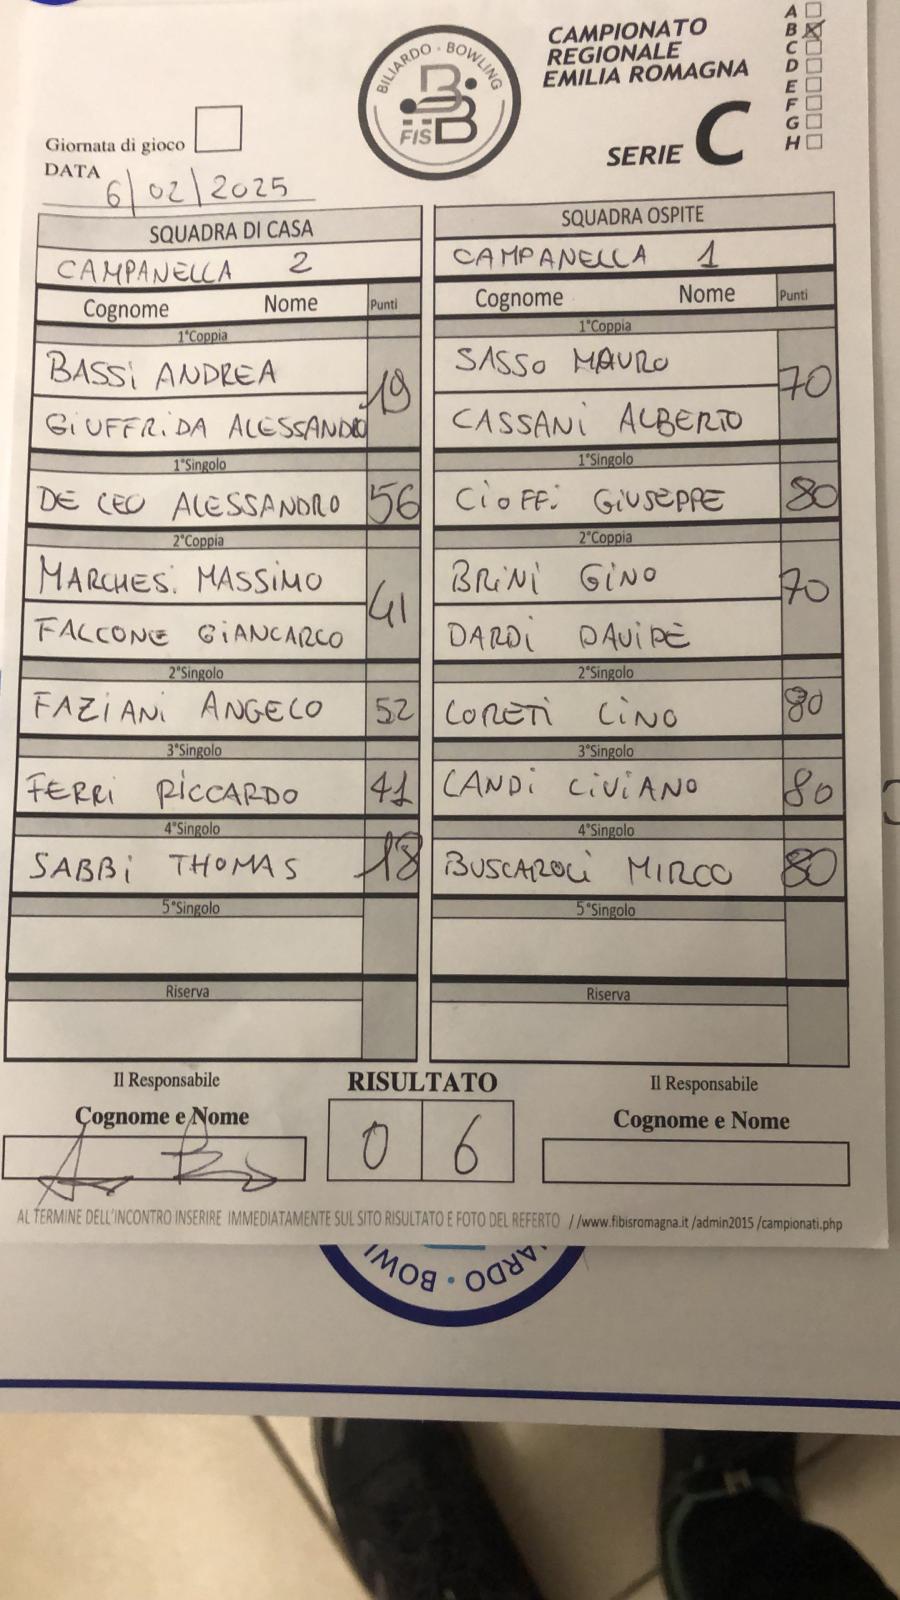 BILIARDO · BOWLING
FISBB
CAMPIONATO
REGIONALE
EMILIA ROMAGNA
SERIE C
A
B
C
D
E
F
G
H
Giornata di gioco
DATA 6/02/2025
SQUADRA DI CASA
CAMPANELLA 2
Cognome Nome Punti
1°Coppia
BASSI ANDREA
19
GIUFFRIDA ALESSANDRO
1°Singolo
DE LEO ALESSANDRO 56
2°Coppia
MARCHESI MASSIMO
41
FALCONE GIANCARLO
2°Singolo
FAZIANI ANGELO 52
3°Singolo
FERRI RICCARDO 41
4°Singolo
SABBI THOMAS 18
5°Singolo
Riserva
SQUADRA OSPITE
CAMPANELLA 1
Cognome Nome Punti
1°Coppia
SASSO MAURO
70
CASSANI ALBERTO
1°Singolo
CIOFFI GIUSEPPE 80
2°Coppia
BRINI GINO
70
DARDI DAVIDE
2°Singolo
LORETI LINO 80
3°Singolo
LANDI LIVIANO 80
4°Singolo
BUSCAROLI MIRCO 80
5°Singolo
Riserva
Il Responsabile
Cognome e Nome
RISULTATO
0 6
Il Responsabile
Cognome e Nome
AL TERMINE DELL'INCONTRO INSERIRE IMMEDIATAMENTE SUL SITO RISULTATO E FOTO DEL REFERTO //www.fibisromagna.it /admin2015 /campionati.php